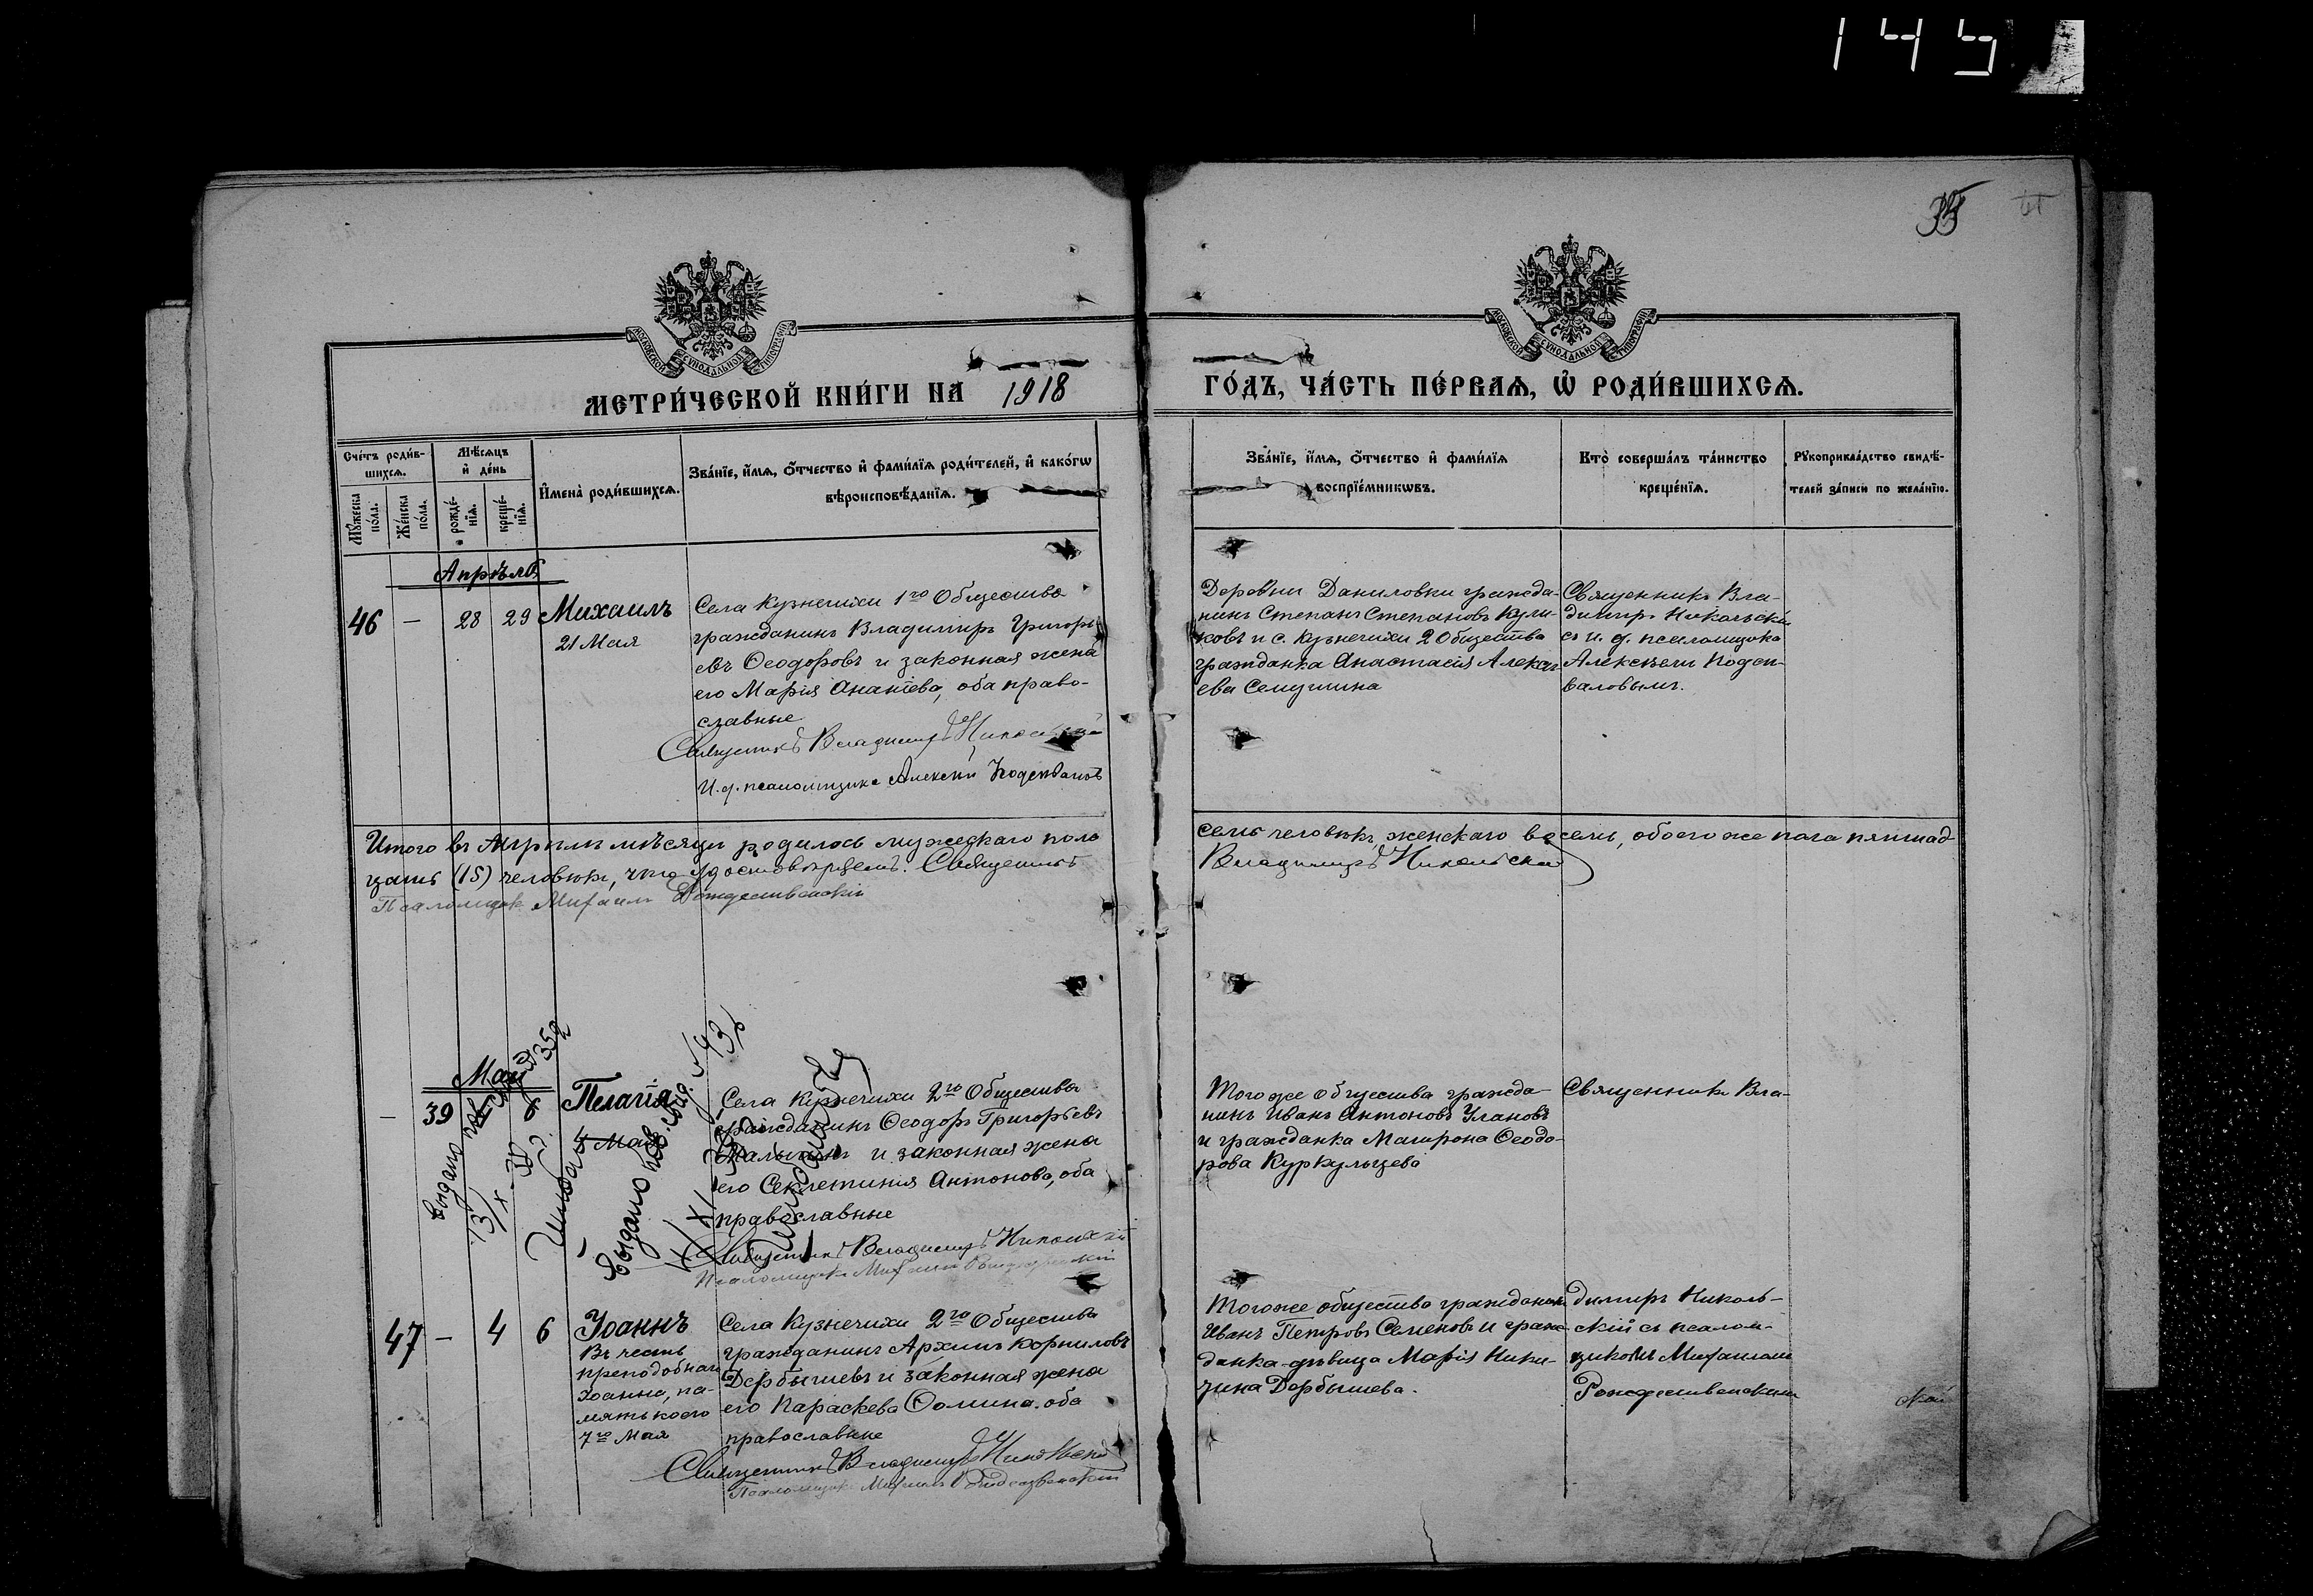 145
35
МОСКОВСКОЙ СѴНОДАЛЬНОЙ ТИПОГРАФІИ
МОСКОВСКОЙ СѴНОДАЛЬНОЙ ТИПОГРАФІИ
МЕТРИ́ЧЕСКОЙ КНИ́ГИ НА 1918 ГО́ДЪ, ЧА́СТЬ ПЕ́РВАѦ, Ѡ҆ РОДИ́ВШИХСѦ.
Сче́тъ роди́в-
шихсѧ.
Мꙋ́жеска по́ла.
Же́нска по́ла.
Мѣ́сѧцъ
и҆ де́нь
рожде́-
нїѧ.
креще́-
нїѧ.
И҆мена̀ роди́вшихсѧ.
Зва́нїе, и҆́мѧ, ѻ҆́тчество и҆ фами́лїѧ роди́телей, и҆ како́гѡ
вѣроисповѣ́данїѧ.
Зва́нїе, и҆́мѧ, ѻ҆́тчество и҆ фами́лїѧ
воспрїе́мникѡвъ.
Кто̀ соверша́лъ та́инство
креще́нїѧ.
Рꙋкоприкла́дство свидѣ́-
телей за́писи по жела́нїю.
Апрѣль
46 — 28 29 Михаилъ
21 Мая
Села Кузнечихи 1го Общества
гражданинъ Владимиръ Григорь-
евъ Ѳеодоровъ и законная жена
его Марія Ананіева, оба право-
славные
Священникъ Владимиръ Никольскій
И. д. псаломщика Алексѣй Подсиваловъ
Деревни Даниловки гражда-
нинъ Степанъ Степановъ Кули-
ковъ и с. Кузнечихи 2 Общества
гражданка Анастасія Алексѣ-
ева Семушина
Священникъ Вла-
димиръ Никольскій
съ и. д. псаломщика
Алексѣемъ Подси-
валовымъ.
Итого въ Апрѣлѣ мѣсяцѣ родилось мужескаго пола семь человѣкъ, женскаго восемь, обоего же пола пятнад-
цать (15) человѣкъ, что удостовѣряемъ. Священникъ Владимиръ Никольскій
Псаломщикъ Михаилъ Рождественскій
Май
— 39
Пелагія
4 Мая
Села Кузнечихи 2го Общества
гражданинъ Ѳеодоръ Григорьевъ
Малыгинъ и законная жена
его Секлетинія Антонова, оба
православные
Священникъ Владимиръ Никольскій
Псаломщикъ Михаилъ Рождественскій
Тогоже общества гражда-
нинъ Иванъ Антоновъ Улановъ
и гражданка Матрона Ѳеодо-
рова Куркульцева
Священникъ Вла-
47 — 4 6 Іоаннъ
Въ честь
преподобнаго
Іоанна, па-
мять коего
7го Мая
Села Кузнечихи 2го Общества
гражданинъ Архипъ Корниловъ
Дербышевъ и законная жена
его Параскева Ѳомина. оба
православные
Священникъ Владимиръ Никольскій
Псаломщикъ Михаилъ Рождественскій
Тогоже общества гражданинъ
Иванъ Петровъ Семеновъ и граж-
данка-дѣвица Марія Ники-
тина Дербышева.
димиръ Николь-
скій съ псалом-
щикомъ Михаиломъ
Рождественскимъ